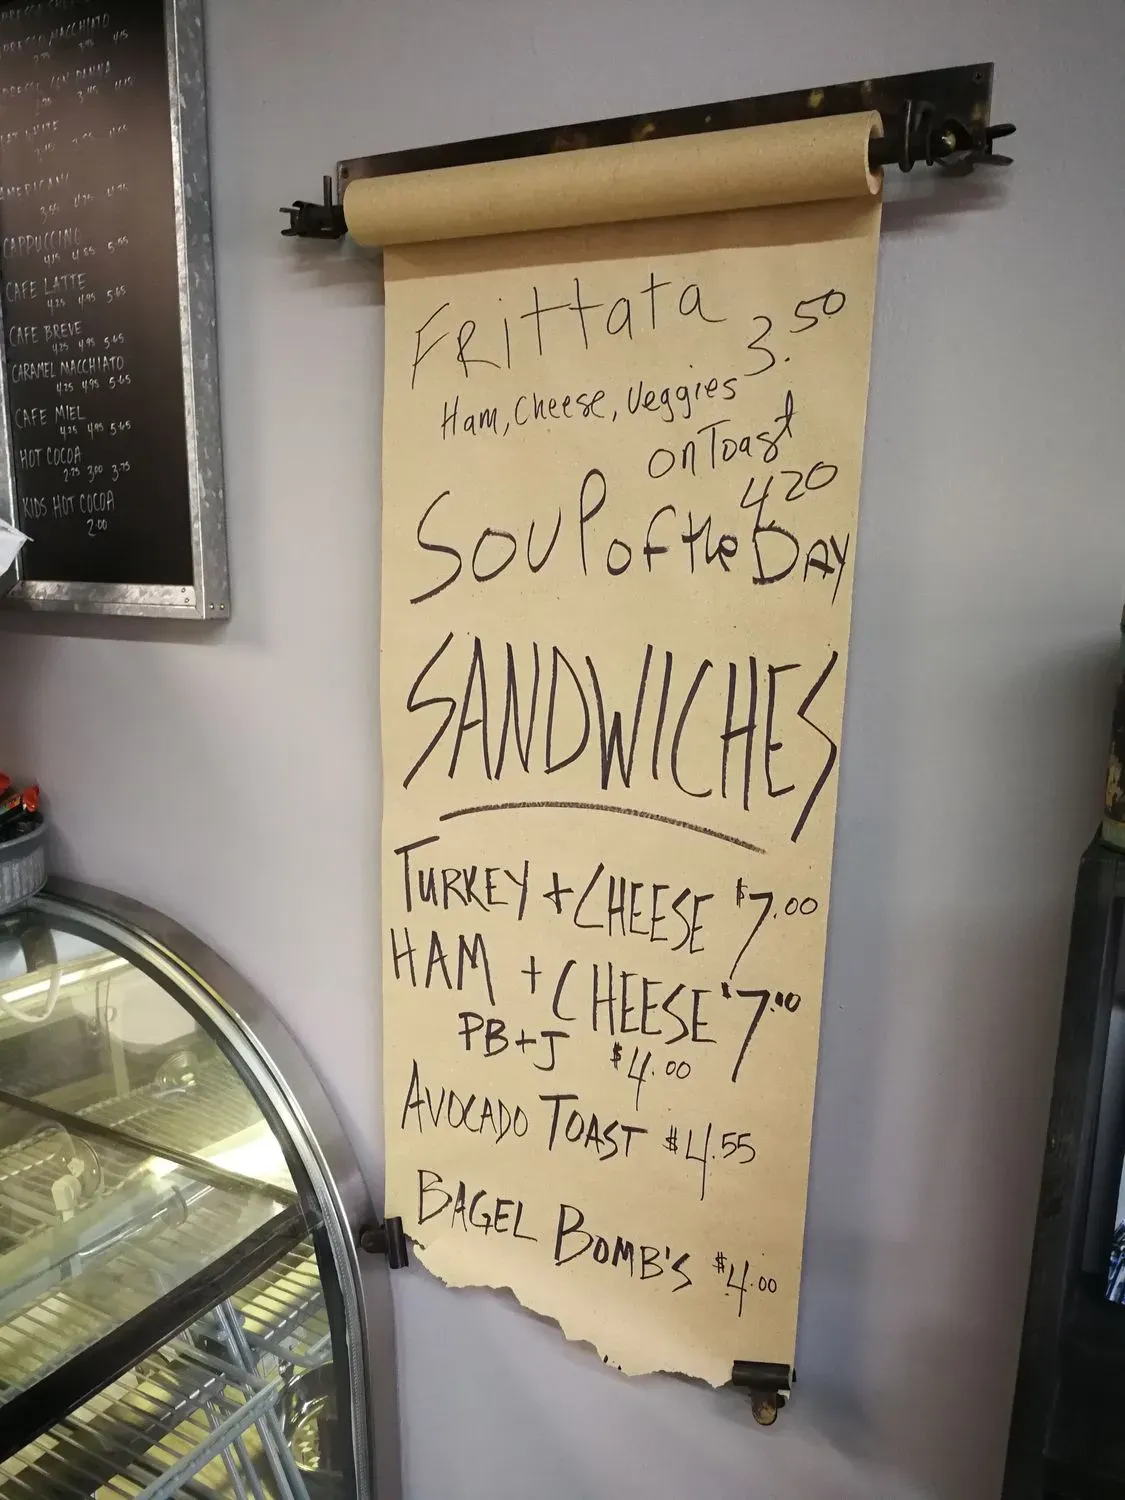 MACCHIATO
CON PANNA
AMERICANO
CAPPUCCINO
4.15 4.85 5.55
CAFE LATTE
4.25 4.95 5.65
CAFE BREVE
4.25 4.95 5.65
CARAMEL MACCHIATO
4.25 4.95 5.65
CAFE MIEL
4.25 4.95 5.65
HOT COCOA
2.75 3.00 3.75
KIDS HOT COCOA
2.00
FRittata 3.50
Ham, Cheese, Veggies
on Toast
4.20
SOUP of the DAY
SANDWICHES
TURKEY + CHEESE $7.00
HAM + CHEESE $7.00
PB+J $4.00
AVOCADO TOAST $4.55
BAGEL BOMB'S $4.00